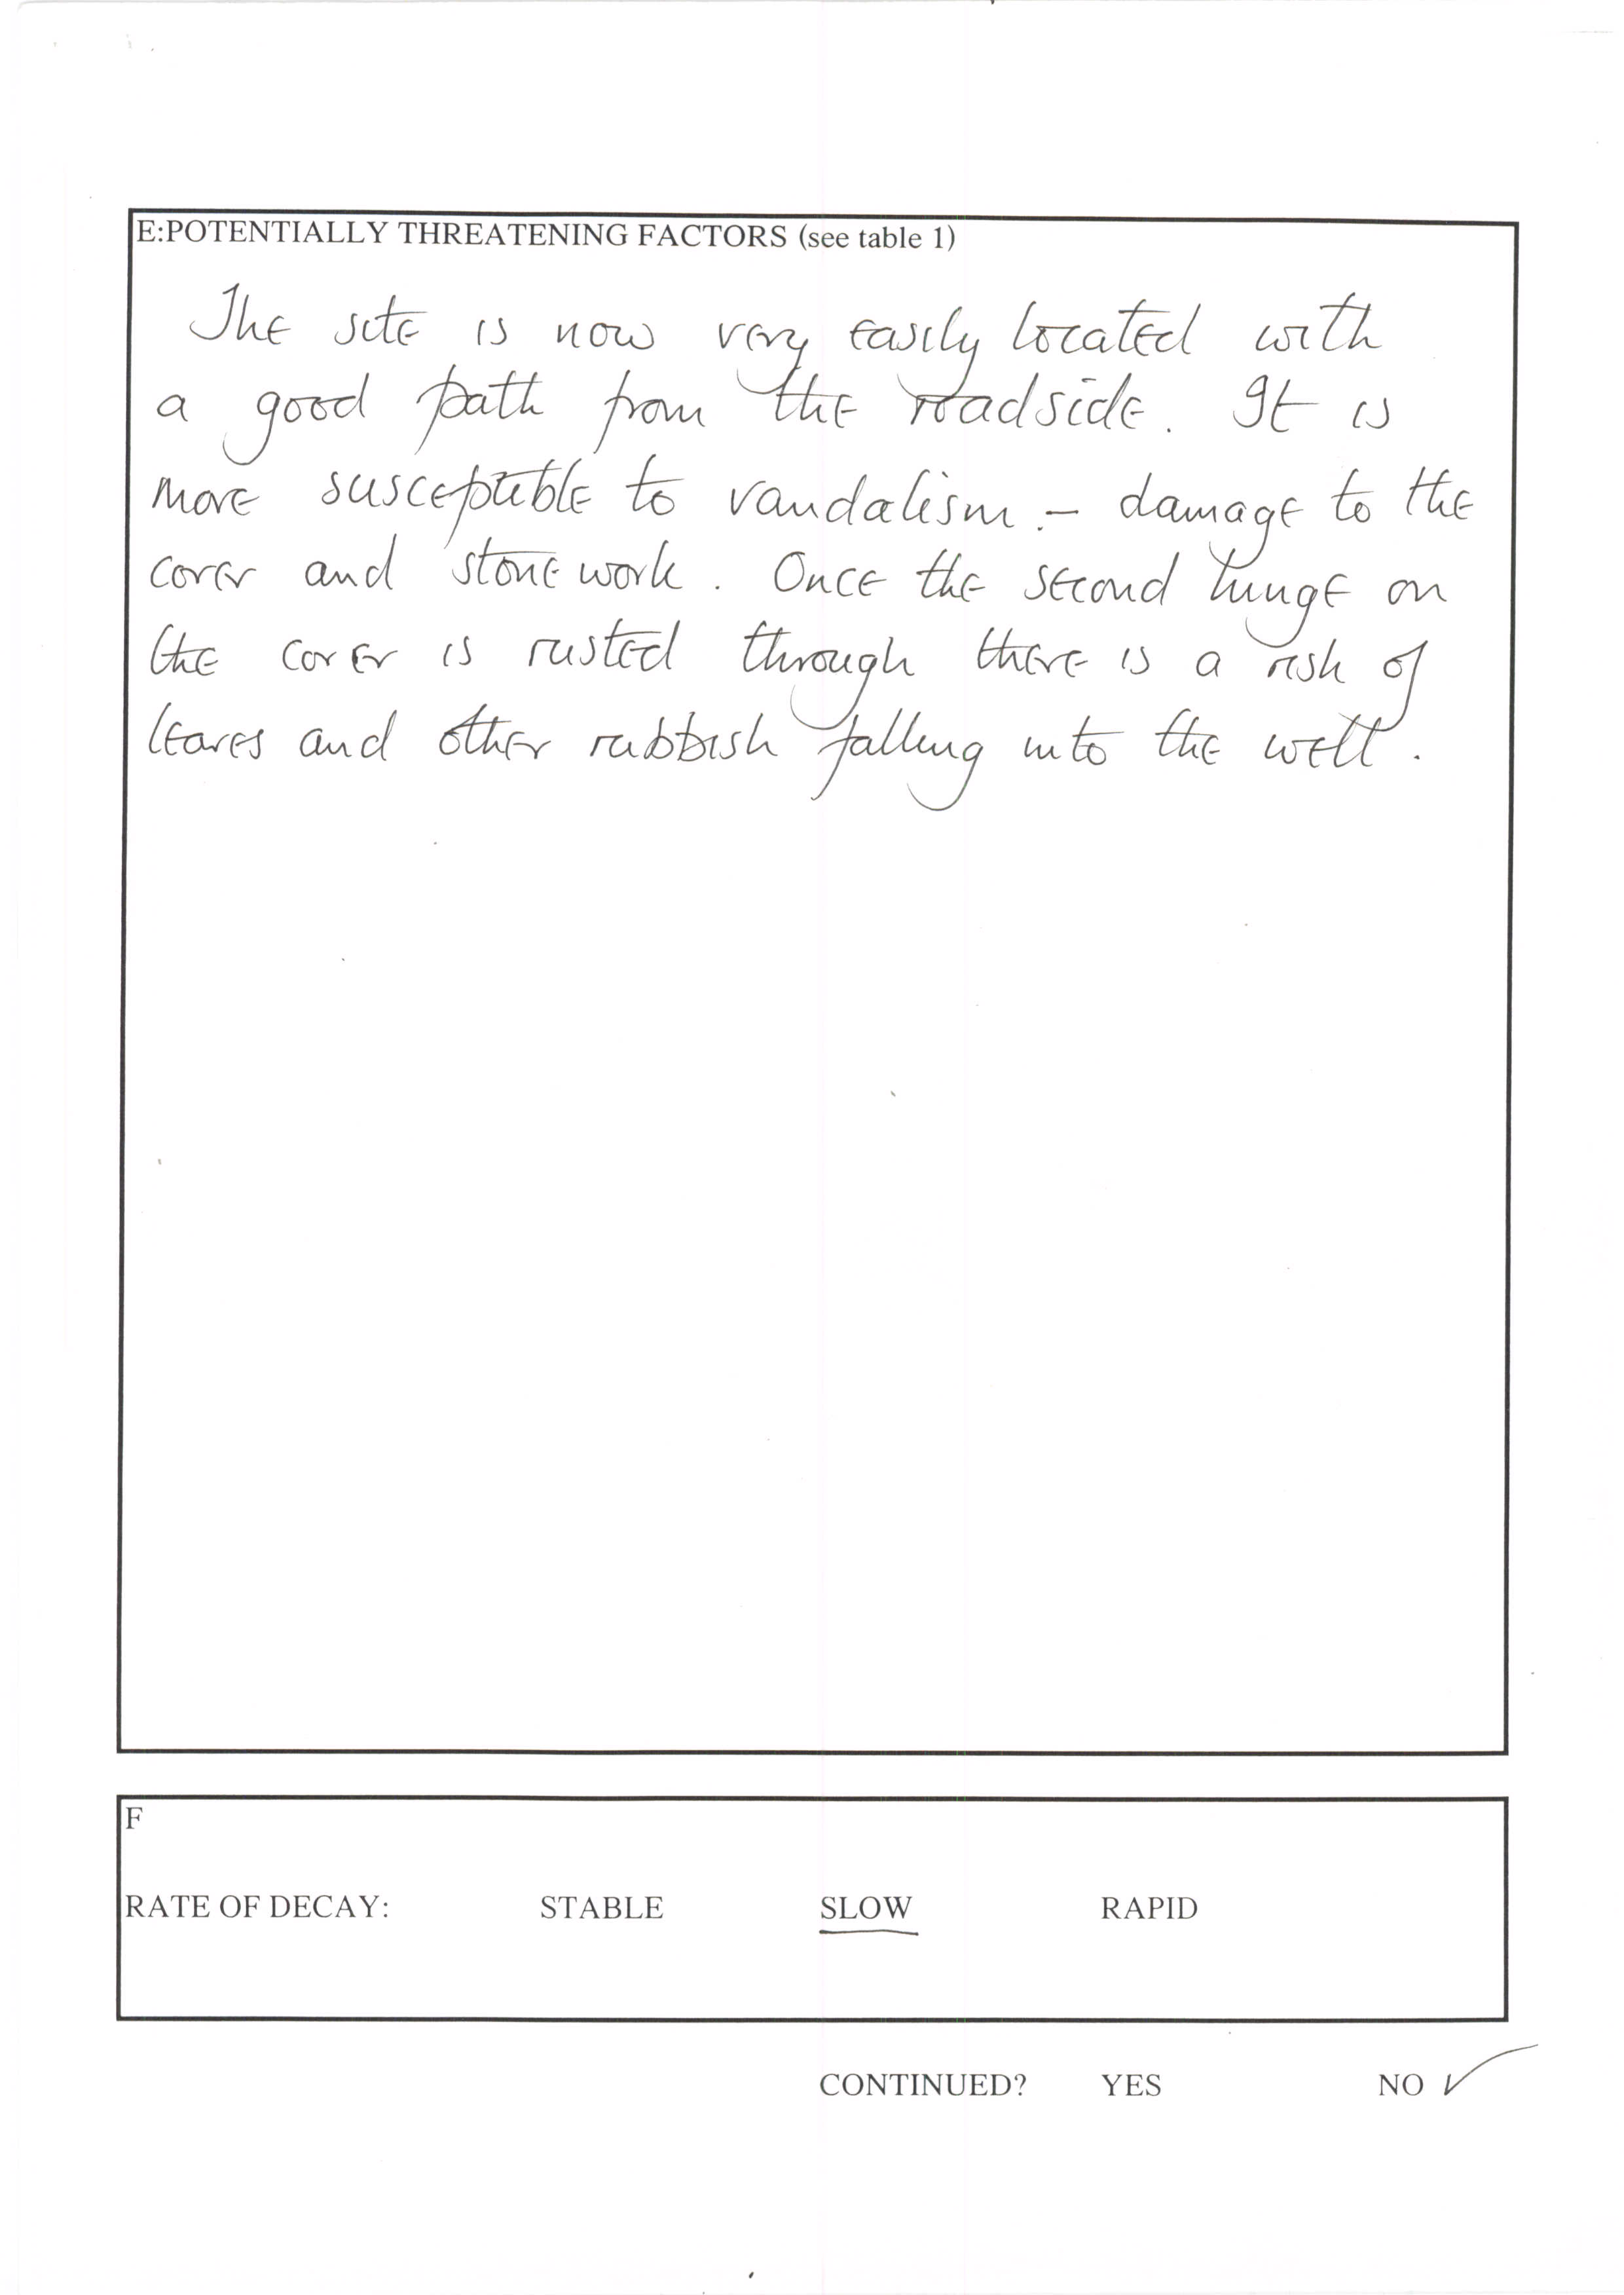 E:POTENTIALLY THREATENING FACTORS (see table 1)
The site is now very easily located with
a good path from the roadside. It is
more susceptible to vandalism - damage to the
cover and stonework. Once the second hinge on
the cover is rusted through there is a risk of
leaves and other rubbish falling into the well.
F
RATE OF DECAY: STABLE SLOW RAPID
CONTINUED? YES NO ✓